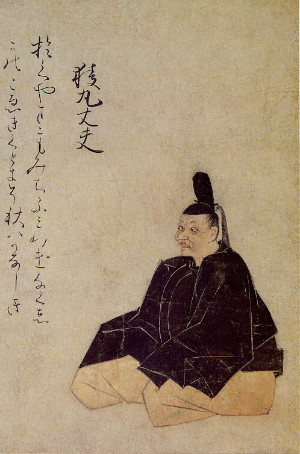 猿丸大夫
おくやまにもみちふみわけなくし
かのこゑきくときそ秋はかなしき